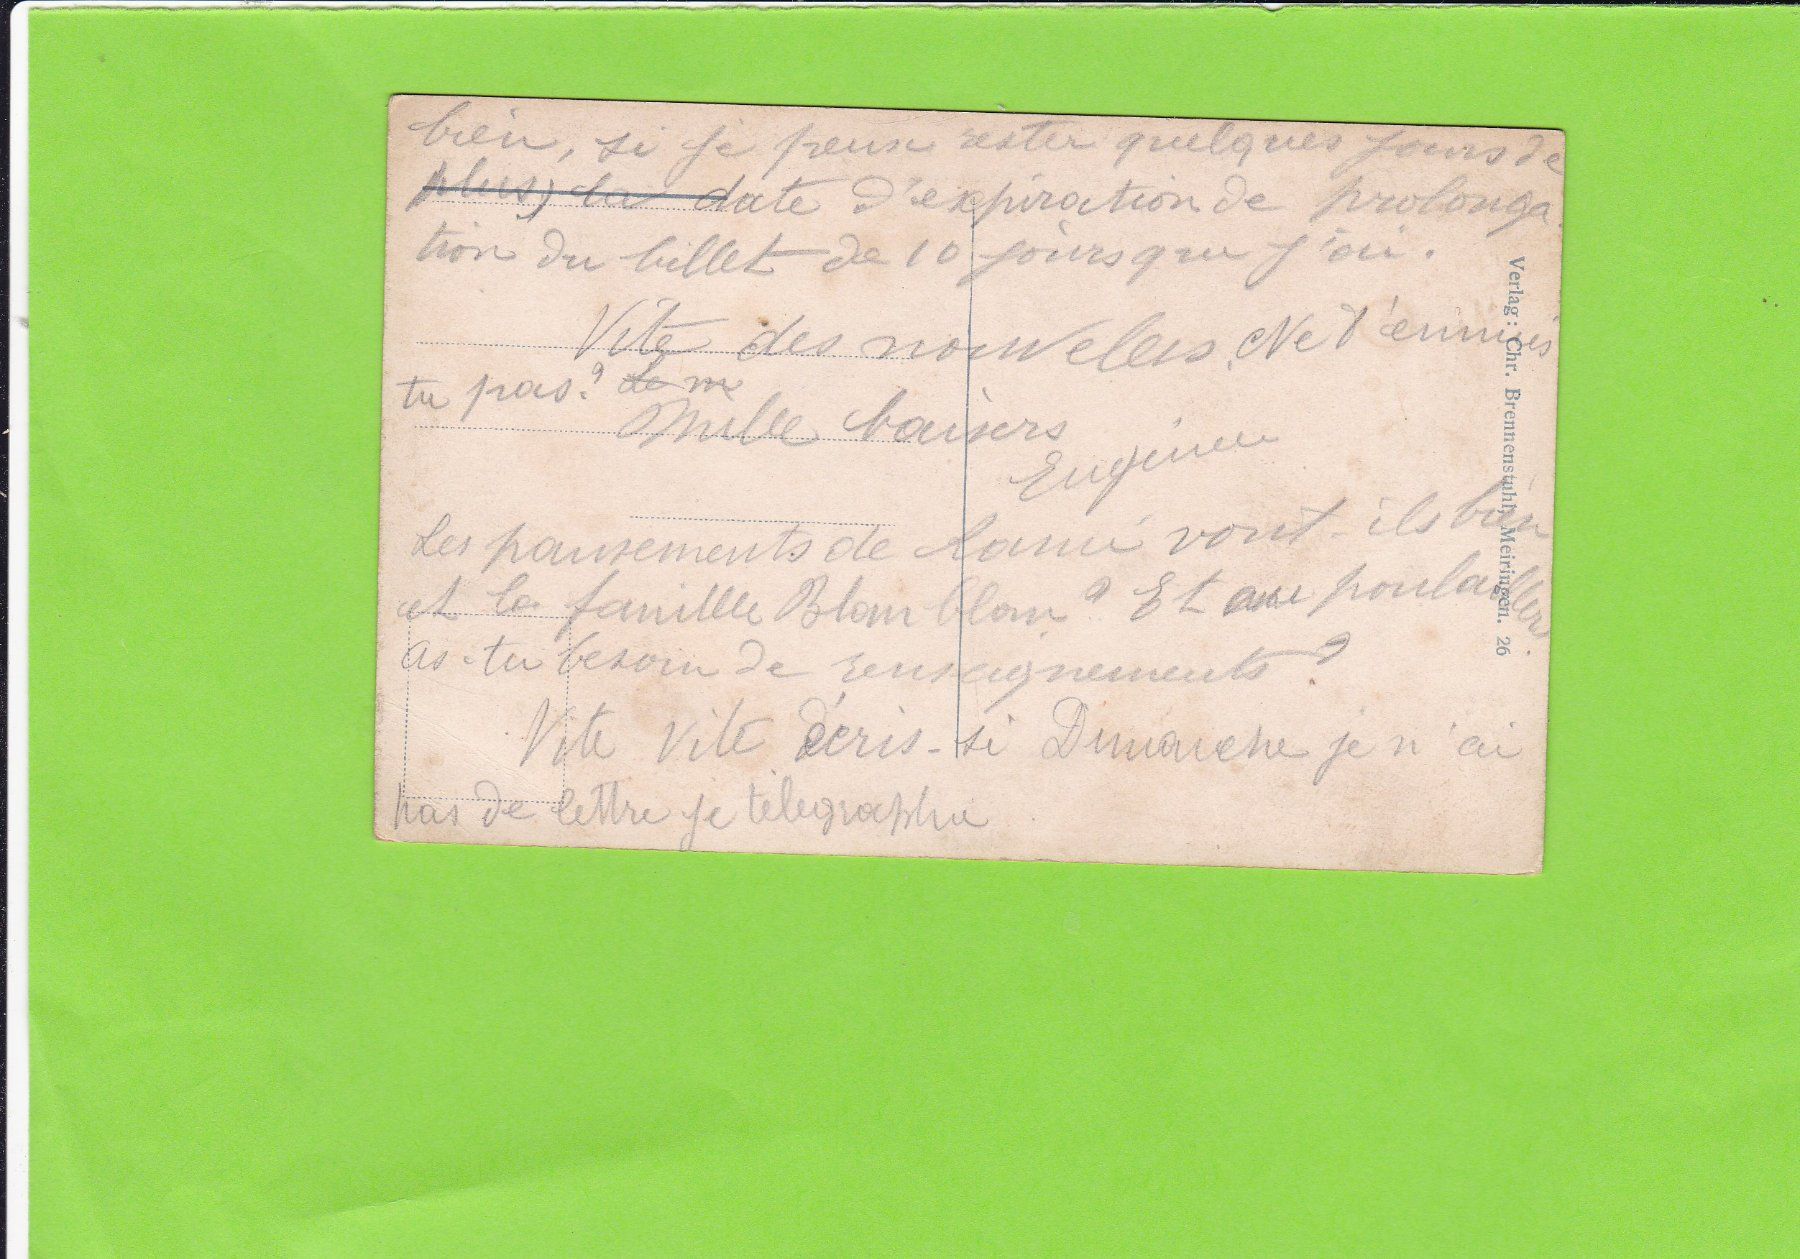 bien, si je peux rester quelques jours de
plus, la date d'expiration de prolonga
tion du billet de 10 jours que j'ai.
Vite des nouvelles. Ne t'ennuies
tu pas?
Mille baisers
Les pansements de vont-ils bien
et la famille Blanblan? Et au poulailler.
as-tu besoin de renseignements?
Vite vite écris - si Dimanche je n'ai
pas de lettre je télégraphie
Verlag: Chr. Brennenstuhl, Meiringen. 26